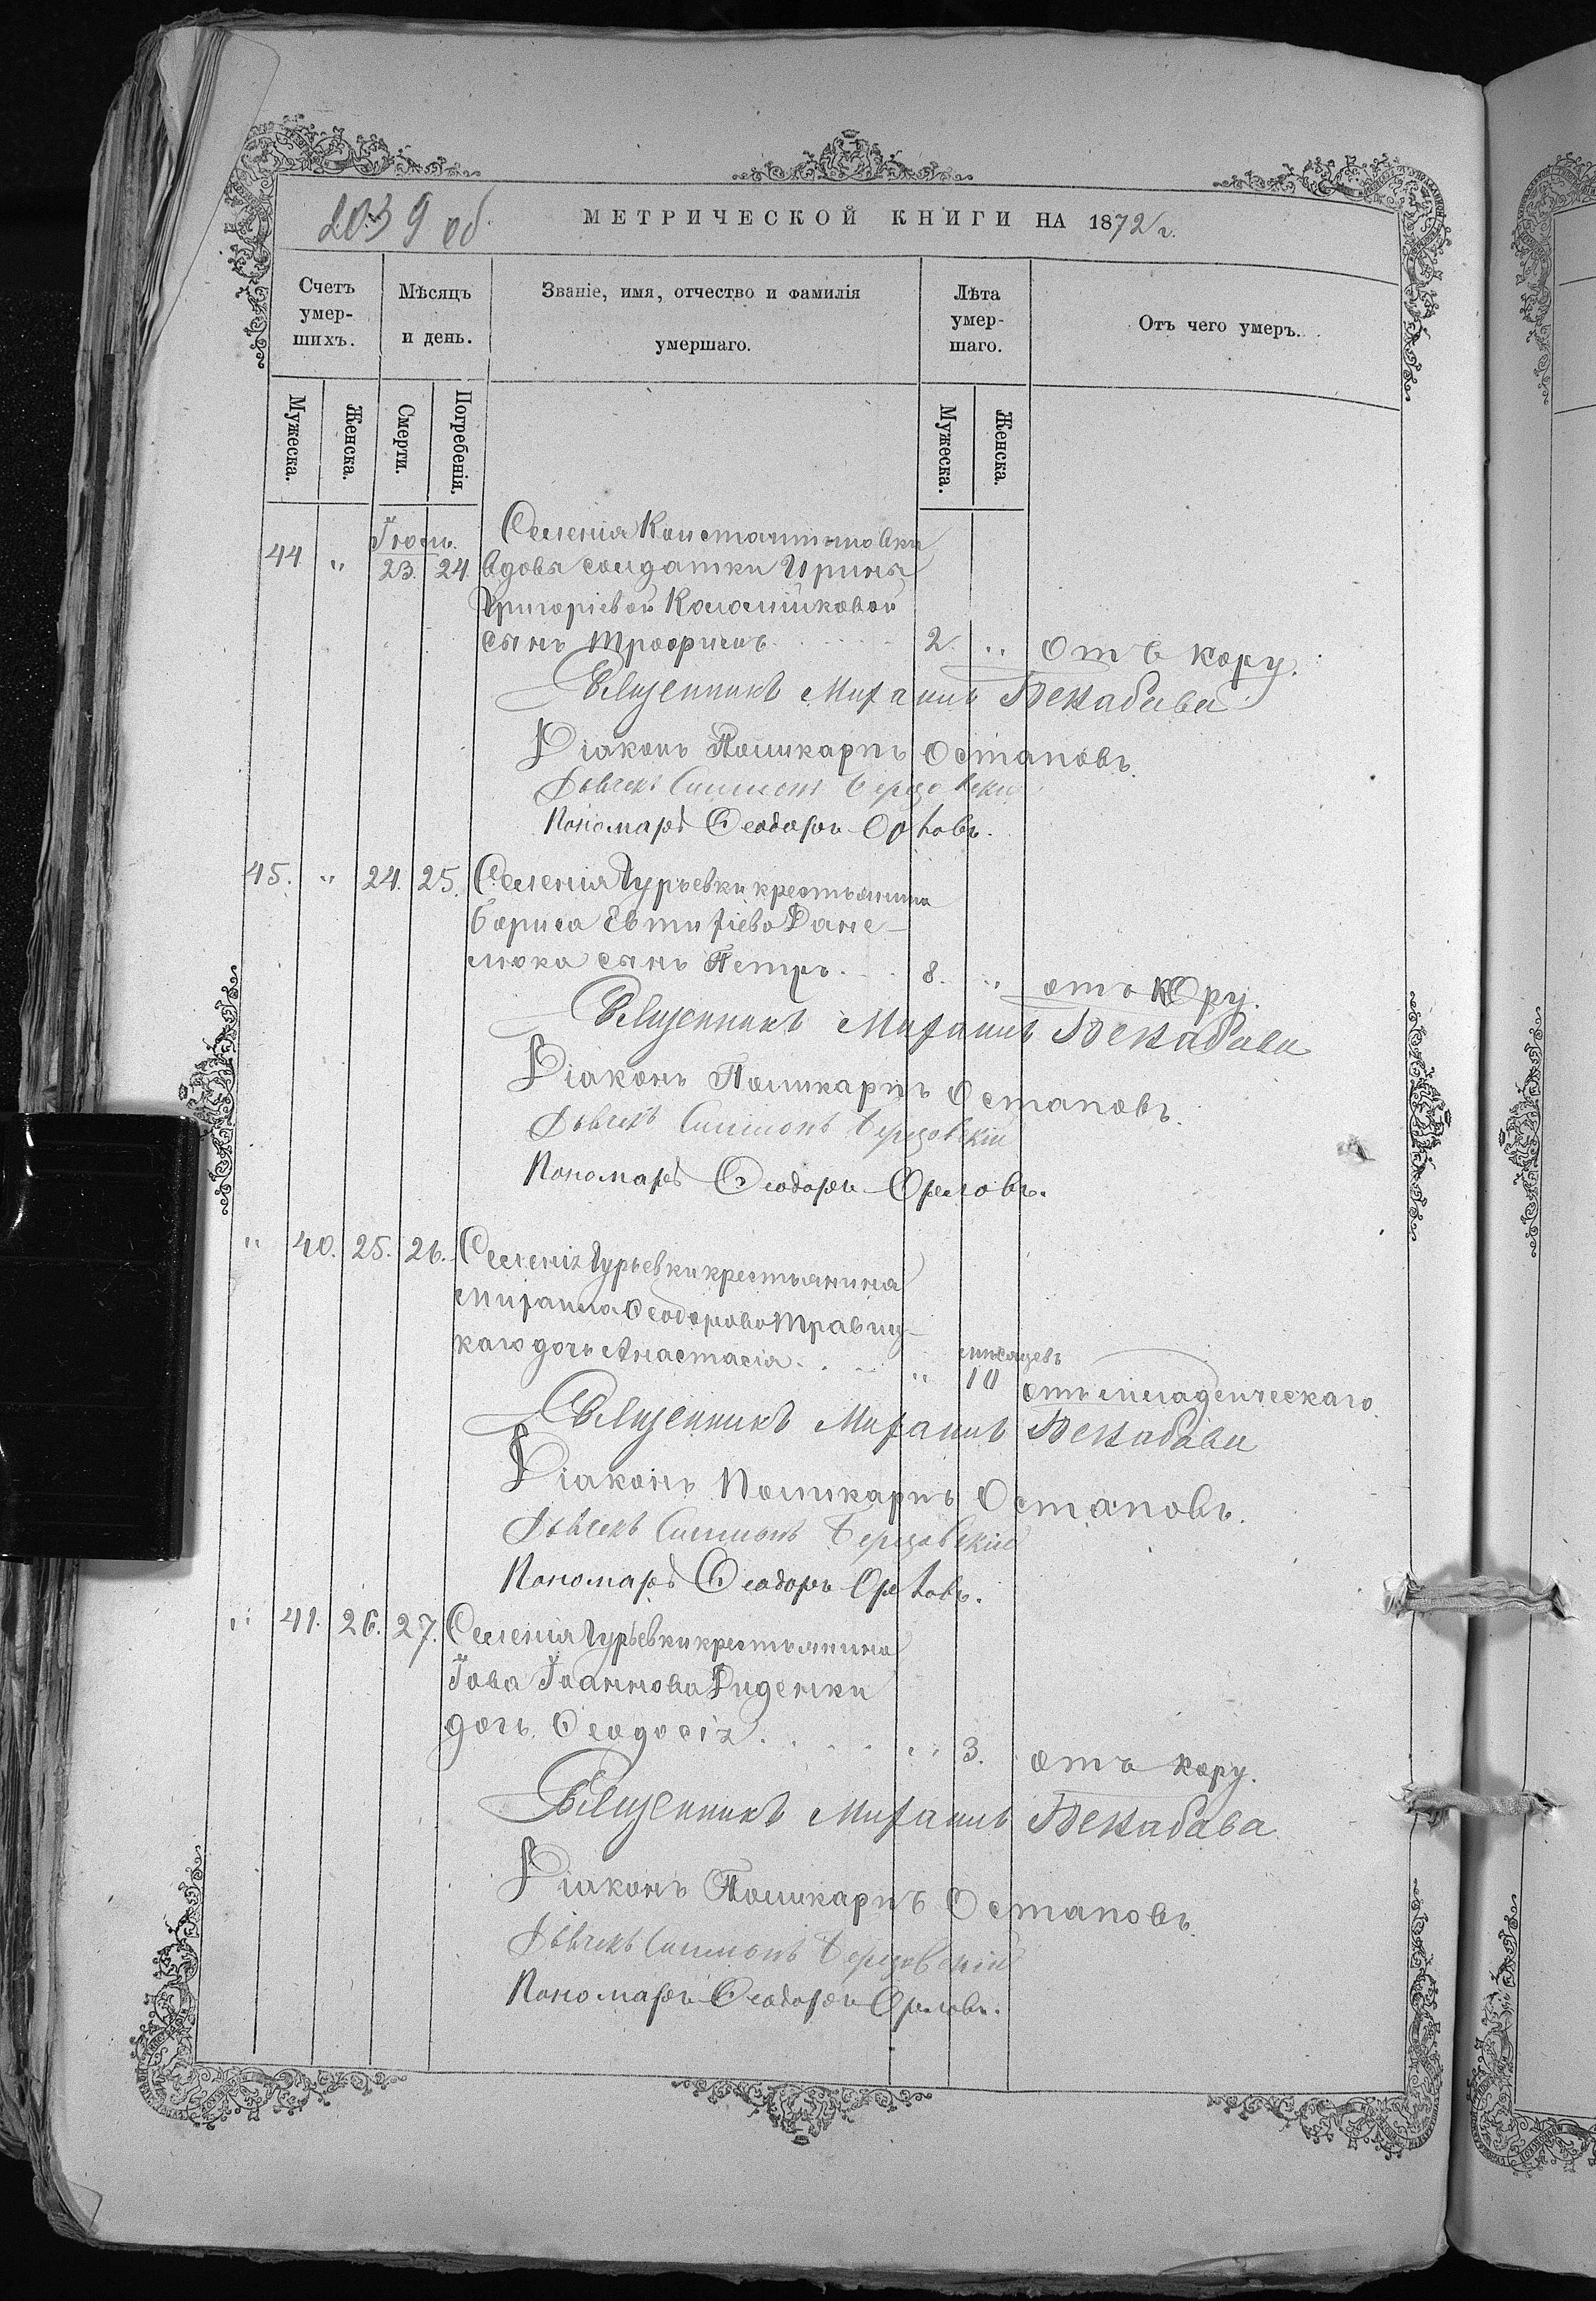 2039 об.
МЕТРИЧЕСКОЙ КНИГИ НА 1872 г.
Счетъ умер-шихъ.
Мѣсяцъ и день.
Званіе, имя, отчество и фамилія умершаго.
Лѣта умер-шаго.
Отъ чего умеръ.
Мужеска. Женска. Смерти. Погребенія. Мужеска. Женска.
Селенія Константиновки
44 " 23. 24. вдовы солдатки Ирины
Григоріевой Колесниковой
сынъ Трофимъ 2. " Отъ кору.
Священникъ Михаилъ
Діаконъ Поликарпъ Остаповъ.
Дьячекъ Симеонъ Березовскій
Пономарь Ѳеодоръ Орловъ.
45. " 24. 25. Селенія Гурьевки крестьянина
Бориса Евтихіева Дане-
люка сынъ Петръ. 8. " отъ кору.
Священникъ Михаилъ
Діаконъ Поликарпъ Остаповъ.
Дьячекъ Симеонъ Березовскій
Пономарь Ѳеодоръ Орловъ.
" 40. 25. 26. Селенія Гурьевки крестьянина
Михаила Ѳеодорова Травиц-
каго дочь Анастасія. " мѣсяцевъ 10 отъ младенческаго.
Священникъ Михаилъ
Діаконъ Поликарпъ Остаповъ.
Дьячекъ Симеонъ Березовскій
Пономарь Ѳеодоръ Орловъ.
" 41. 26. 27. Селенія Гурьевки крестьянина
Іова Іоаннова Диденки
дочь Ѳеодосія. " 3. отъ кору.
Священникъ Михаилъ
Діаконъ Поликарпъ Остаповъ.
Дьячекъ Симеонъ Березовскій
Пономарь Ѳеодоръ Орловъ.